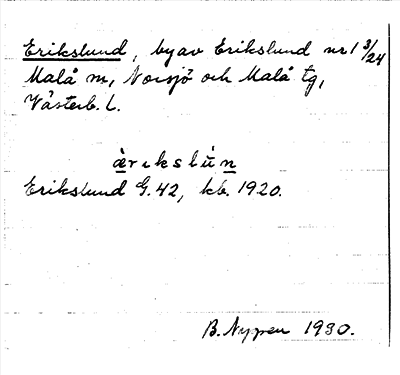 Erikslund, by av Erikslund nr 1 3/24
Malå sn, Norsjö och Malå tg,
Västerb. L.
èrıkslùn
Erikslund G.42, kb. 1920.
B. Nypen 1930.